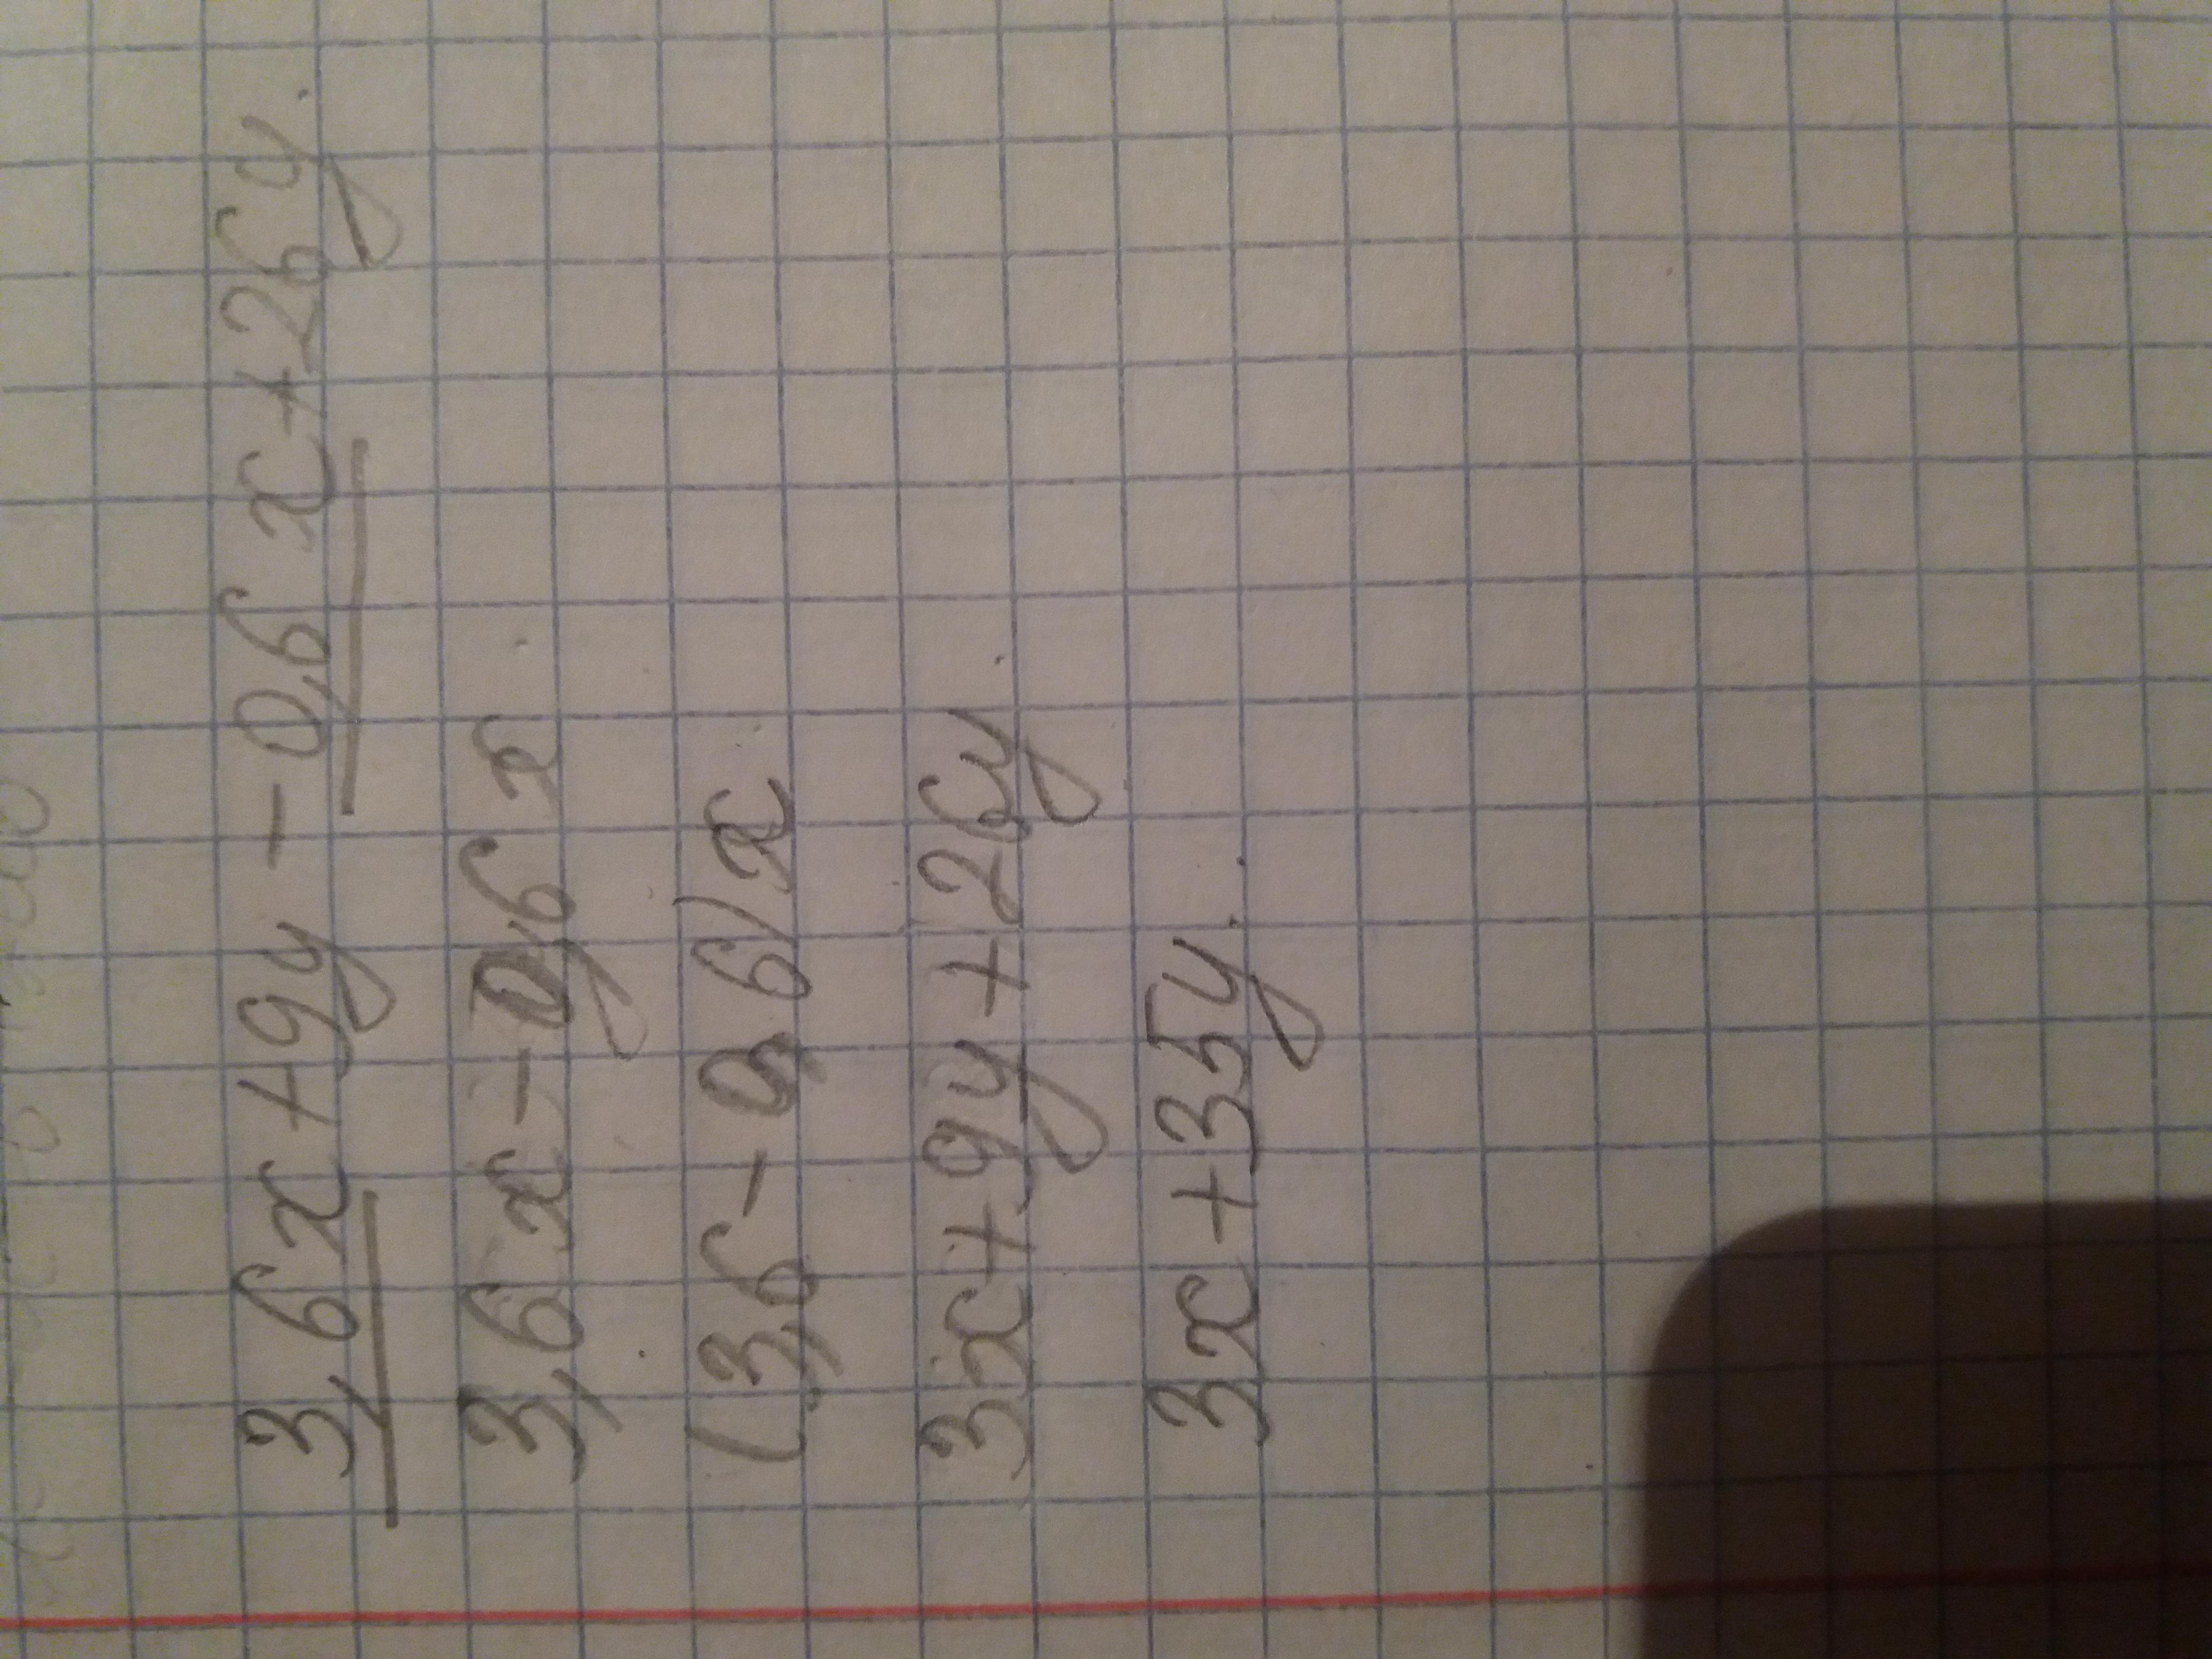 3,6x+9y-0,6x+26y.
3,6x-0,6x
(3,6-0,6)x
3x+9y+26y
3x+35y.